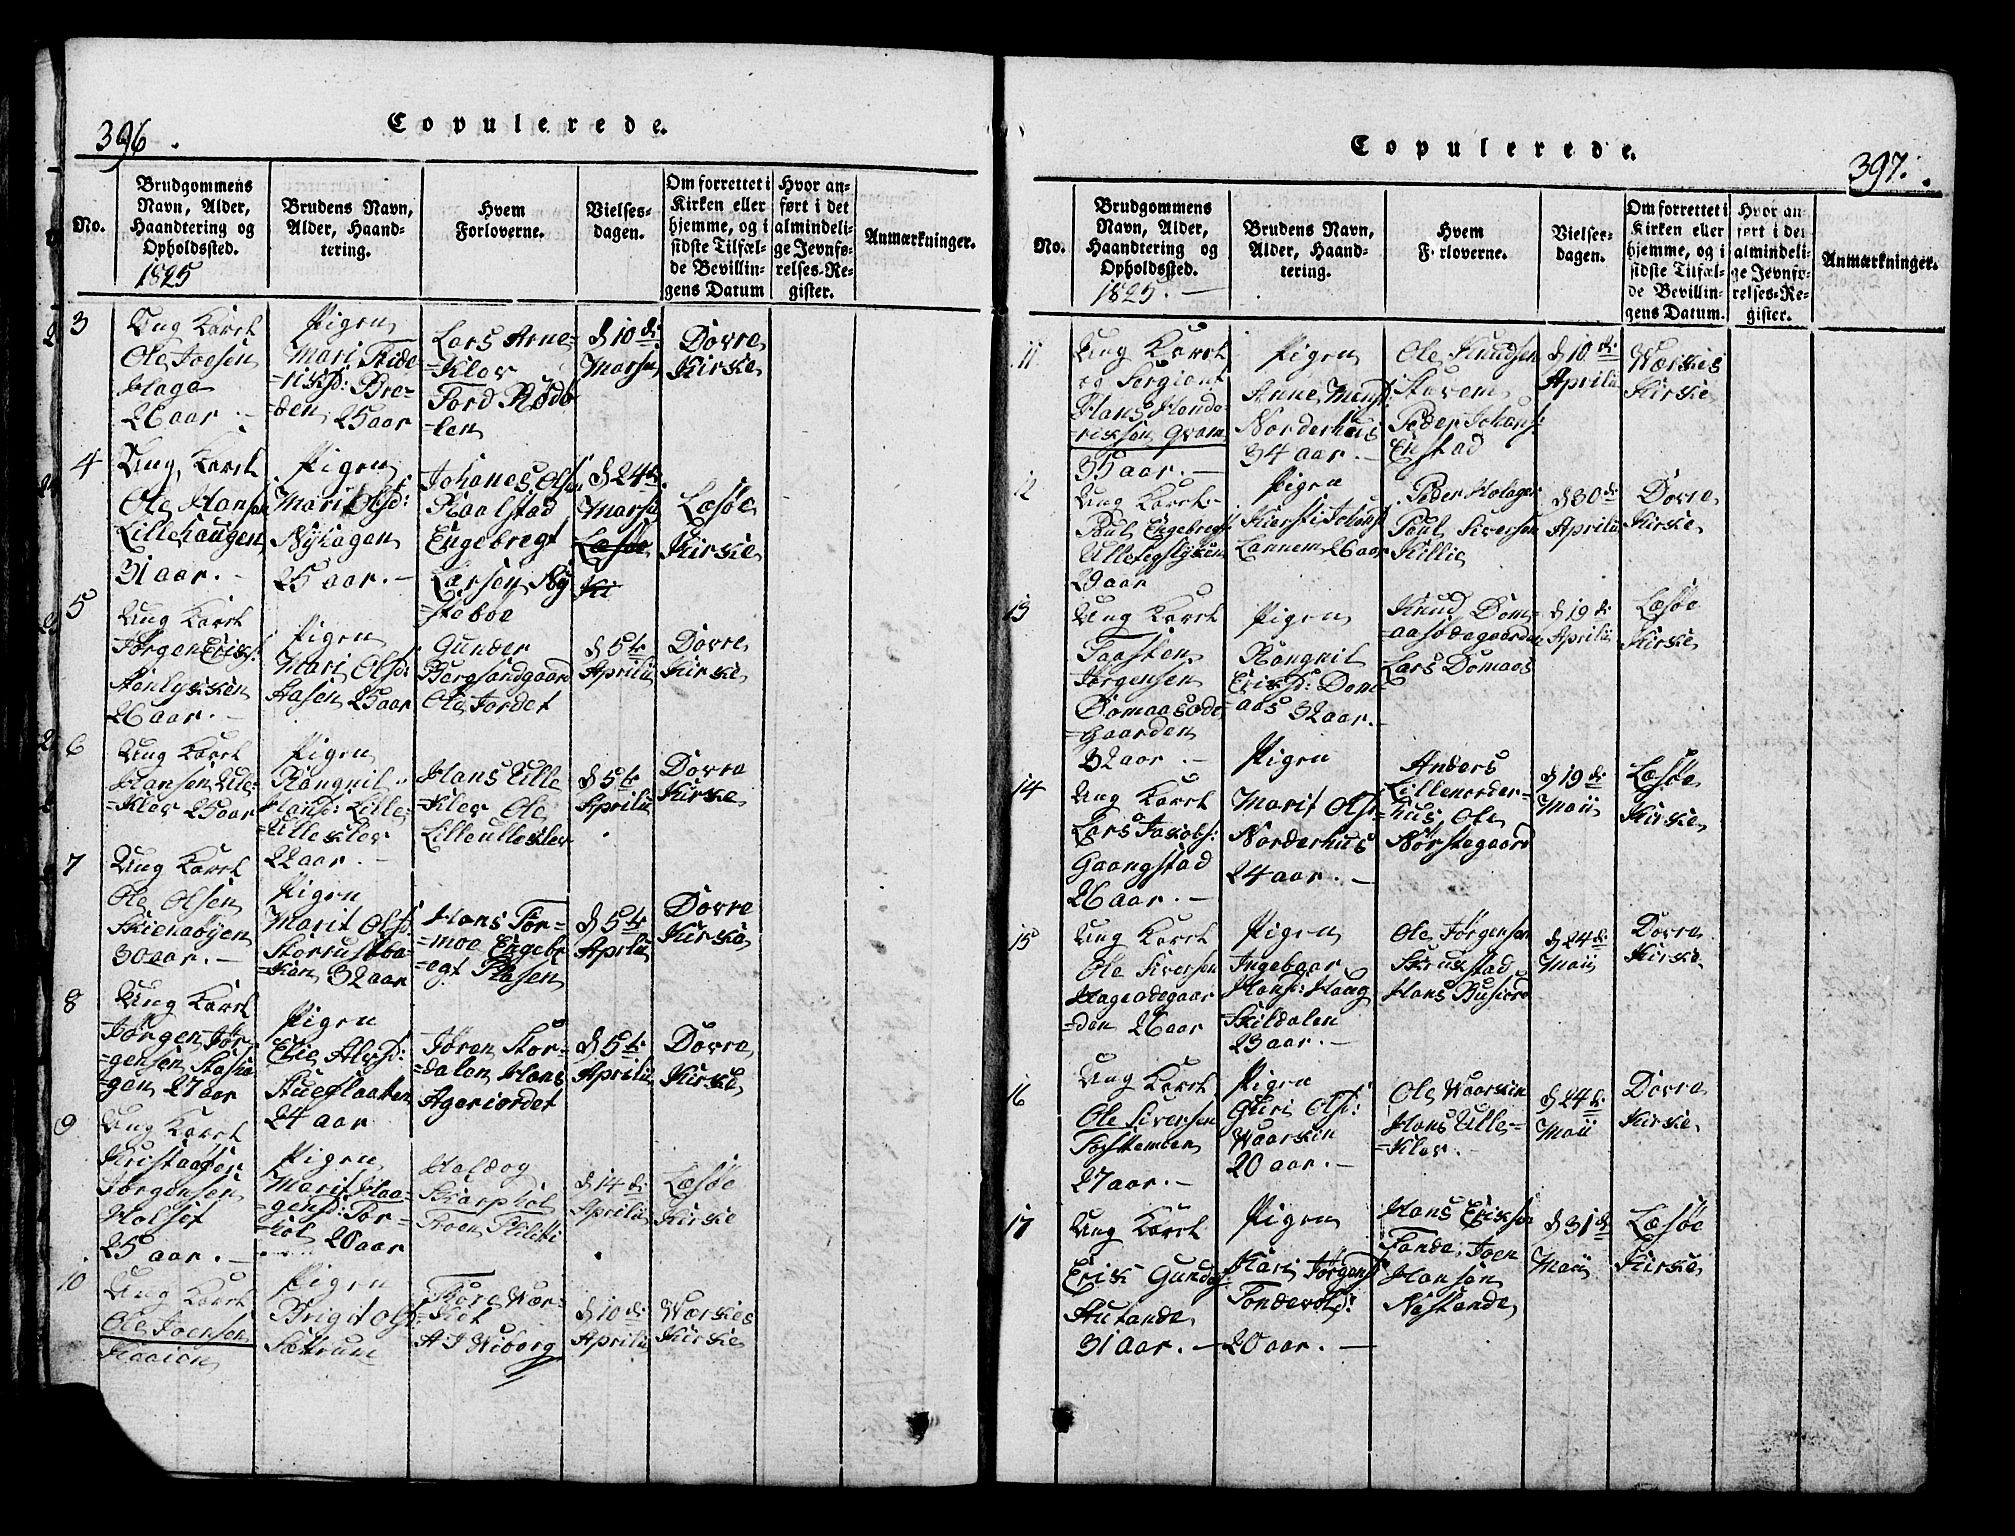 396.
Copulerede.
No.
Brudgommens
Navn, Alder,
Haandtering og
Opholdssted.
1825
Brudens Navn,
Alder, Haand-
tering.
Hvem
Forloverne.
Vielses-
dagen.
Om forrettet i
Kirken eller
hjemme, og i
sidste Tilfæl-
de Bevillin-
gens Datum
Hvor an-
ført i det
almindeli-
ge Jevnfø-
relses-Re-
gister.
Anmærkninger.
3
Ung Karel
Ole Joesen
26 aar. -
Pigen
Mari Fride-
=riksd: Bre-
=den, 25 aar
Lars Arne-
=Klev
Tord Rode
=len
d 10de
Marsii
Dovre
Kirke
4
Ung Karel
Ole Hansen
Lillehaugen
31 aar. -
Pigen
Marit Olsd:
Nyhagen
25 aar. -
Johanes Olsen
Raalstad
Engebregt
Larsen Ny
=staboe
d 24de
Marsii
Læsøe
Ki
Læsøe
Kirke
5
Ung Karel
Jørgen Eriks:
26 aar. -
Pigen
Mari Olsd:
Aasen 25 aar
Gunder
Bergsandgaard
Ole Jordet
d 5te
Aprilii
Dovre
Kirke
6
Ung Karel
Hansen Ule-
=Klev 25 aar
Pigen
Rangnil
Hansd: Lille-
=Ulleklev
22 aar. -
Hans Ulle
=Klev Ole
Lilleulleklev
d 5te
Aprilii
Dovre
Kirke
7
Ung Karel
Ole Olsen
30 aar. -
Pigen
Marit Olsd:
=ken 32 aar
Hans Tor-
=moe Engebr
=egt Plasen
d 5te
Aprilii
Dovre
Kirke
8
Ung Karel
Jørgen Jør-
=gensen
=gen 27 aar
Pigen
24 aar
Jøren Stor-
=dalen Hans
Ageriordet
d 5te
Aprilii
Dovre
Kirke
9
Ung Karel
Kristoffer
Jørgensen
Holset
25 aar. -
Pigen
Marit Haa-
=gensd: Tor-
=hol 20 aar
Skarphol
d 14de
Aprilii
Læsøe
Kirke
10
Ung Karel
Ole Joensen
Pigen
Brigt Olsd:
Sætrum
Tore Vær-
=Ket
A J Wiborg
d 10de
Aprilii
Værkes
Kirke
Copulerede.
397.
No.
Brudgommens
Navn, Alder,
Haandtering og
Opholdssted.
1825. -
Brudens Navn,
Alder, Haand-
tering.
Hvem
Forloverne.
Vielses-
dagen.
Om forrettet i
Kirken eller
hjemme, og i
sidste Tilfæl-
de Bevillin-
gens Datum.
Hvor an
ført i det
almindeli-
ge Jevnfø-
relses-Re-
gister.
Anmærkninger.
11
Ung Karel
og Sergiant
Hans Hend-
=riksen Qvam
35 aar. -
Pigen
Norderhus
34 aar. -
Ole Knudsen
Stavem
Peder Johans:
Enstad
d 10de
Aprilii
Værkes
Kirke
12
Ung Karel -
Poul Engebregt
29 aar
Pigen
Kiersti Johansd
Lannem 26 aar
Peder Holager
Poul Siversen
Killie
d 30de
Aprilii
Dovre
Kirke
13
Ung Karel
Taasten
Jørgensen
Domaasøde
=gaarden
32 aar. -
Pigen
Rangnil
Eriksd: Dom-
=aas 32 aar. -
Knud Dom-
=aasødegaarden
Lars Domaas
d 19de
Aprilii
Læsøe
Kirke
14
Ung Karel
Lars Jakobs:
Gaangstad
26 aar. -
Pigen
Marit Olsd
Norderhus
24 aar. -
Anders
Lillenorder-
=hus, Ole
Nørstegaard
d 19de
Maii
Læsøe
Kirke
15
Ung Karel
Ole Siversen
Hageødegaar
=den 26 aar
Pigen
Ingeboar
Hansd: Haug
=Skildalen
23 aar. -
Ole Jørgensen
Skrukstad
Hans Busiord
d 24de
Maii
Dovre
Kirke
16
Ung Karel
Ole Siversen
Toftemoen
27 aar. -
Pigen
Guri Olsd:
Vaarkin
20 aar. -
Ole Vaarkin
Hans Ulle-
=Klev. -
d 24de
Maii
Dovre
Kirke
17
Ung Karel
Erik Gunders:
Stutande
31 aar. -
Pigen
Kari Jørgensd
Tondevold:
20 aar. -
Hans Eriksen
Tande, Joen
Hansen
Nestande
d 31de
Maii
Læsøe
Kirke